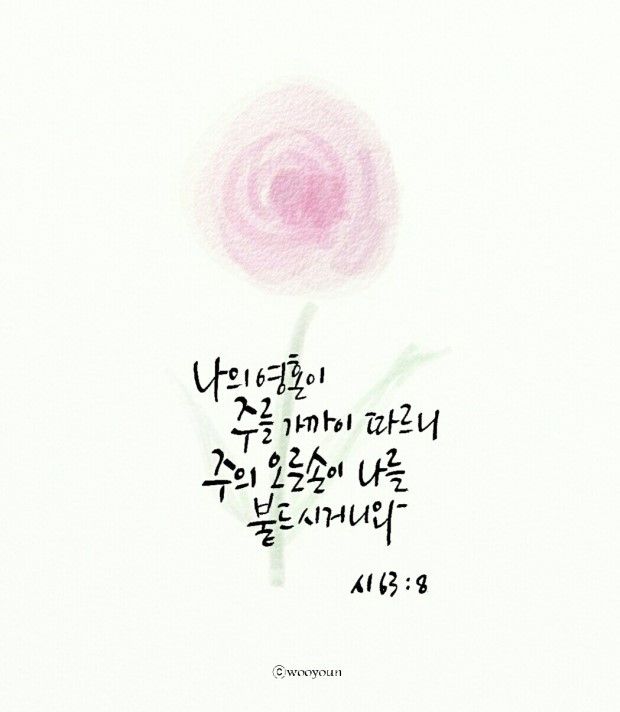 나의 영혼이
주를 가까이 따르니
주의 오른손이 나를
붙드시거니와
시 63 : 8
ⓒwooyoun